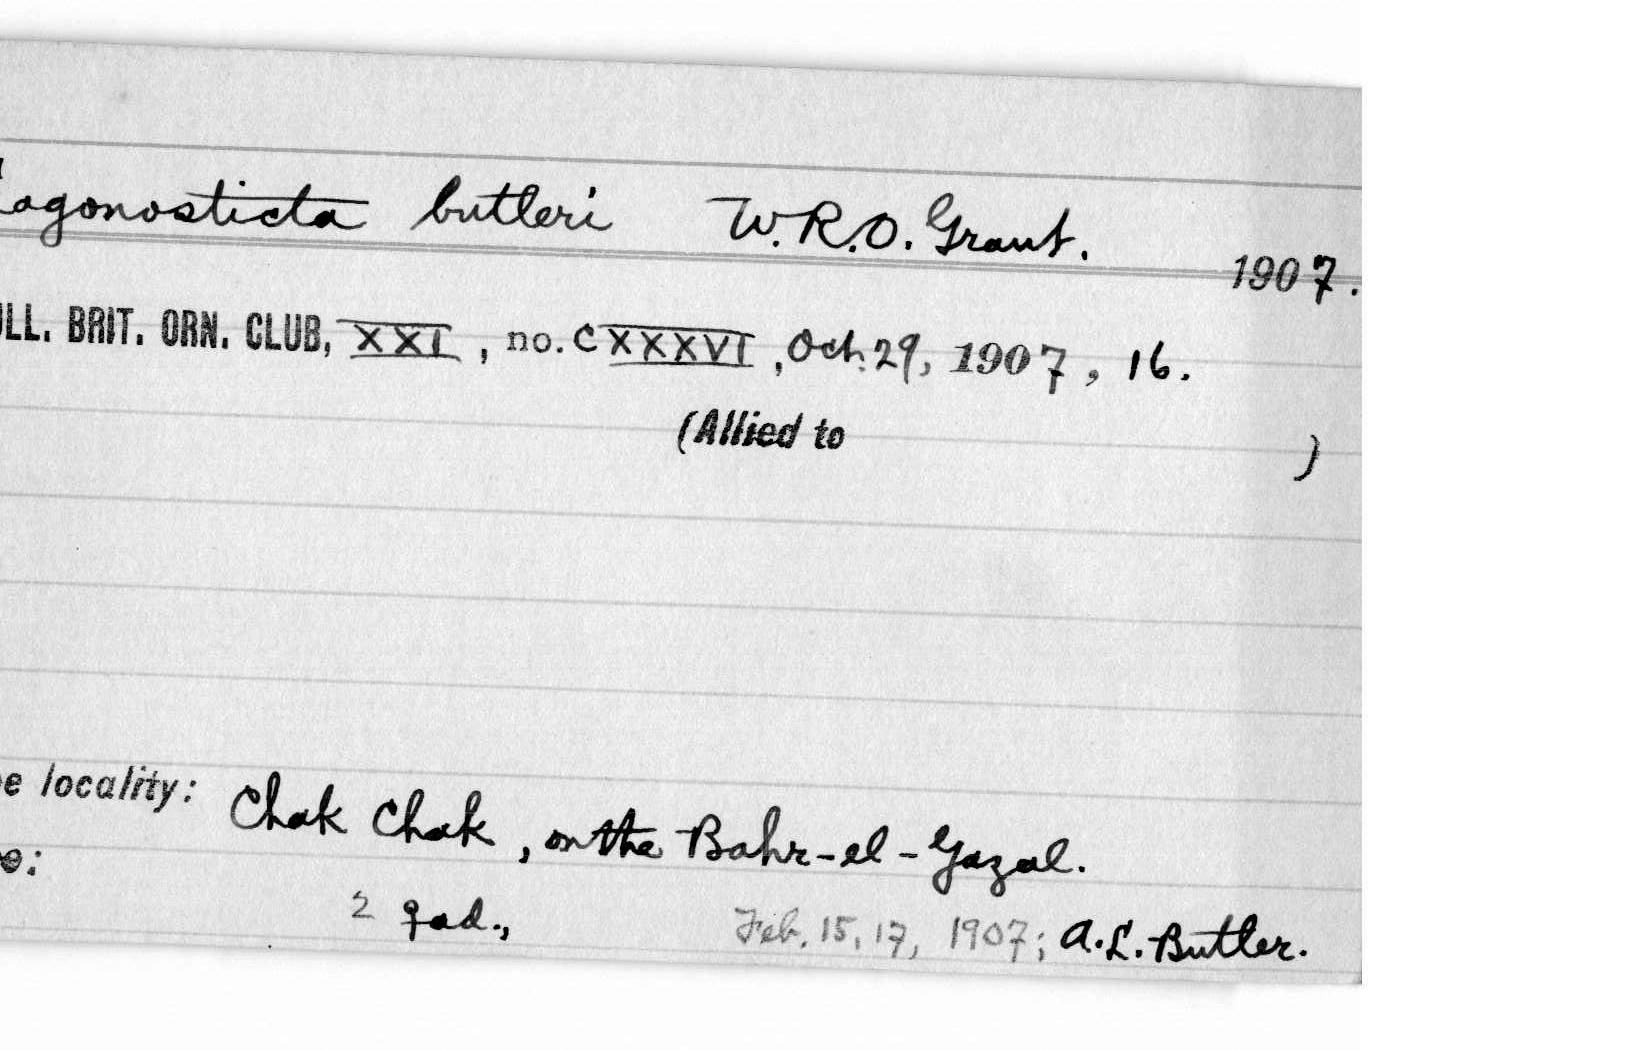 Lagonosticta butleri W.R.O. Grant. 1907.
ULL. BRIT. ORN. CLUB, XXI, no. CXXXVI, Oct. 29, 1907, 16.
(Allied to )
e locality: Chak Chak, on the Bahr-el-Gazal.
e:
2 ♀ ad., Feb. 15, 17, 1907; A.L. Butler.